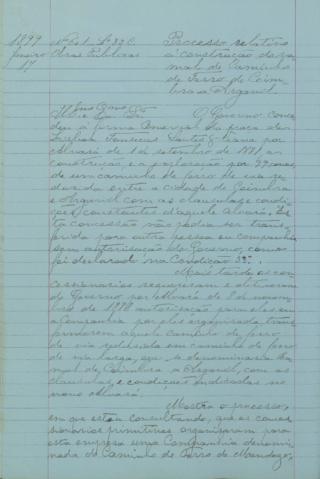 1899 Nº 601 L. 33 C. Processo relativo
Janeiro Obras Publicas á construcção do ra-
17 mal de Caminho
de Ferro de Coim-
bra a Arganil.
Illmo Exmo Snr O Governo conce-
deu á firma Comercial da praça de
Lisboa Fonsecas Santos & Vianna por
Alvará de 1 de setembro de 1887 a
construcção e a exploração por 99 annos
de um caminho de ferro de via re-
duzida entre a cidade de Coimbra
e Arganil com as clausulas e condi-
ções constantes d'aquele Alvará. Es-
ta concessão não podia ser trans-
ferida para outra pessoa ou companhia
sem autorisação do Governo, como
foi declarado na Condição 53ª.
Mais tarde os con-
cessionarios requereram e obtiveram
do Governo por Alvará de 8 de novem-
bro de 1888 autorização para elles ou
a Companhia por elles organisada trans-
formarem aquele caminho de ferro
de via reduzida em caminho de ferro
de via larga, que se denominaria Ra-
mal de Coimbra a Arganil, com as
clausulas, e condições indicadas no
novo Alvará.
Mostra o processo,
em que estou consultando, que os conces-
sionarios primitivos organizaram para
esta empresa uma Companhia denomi-
nada do Caminho de Ferro do Mondego,